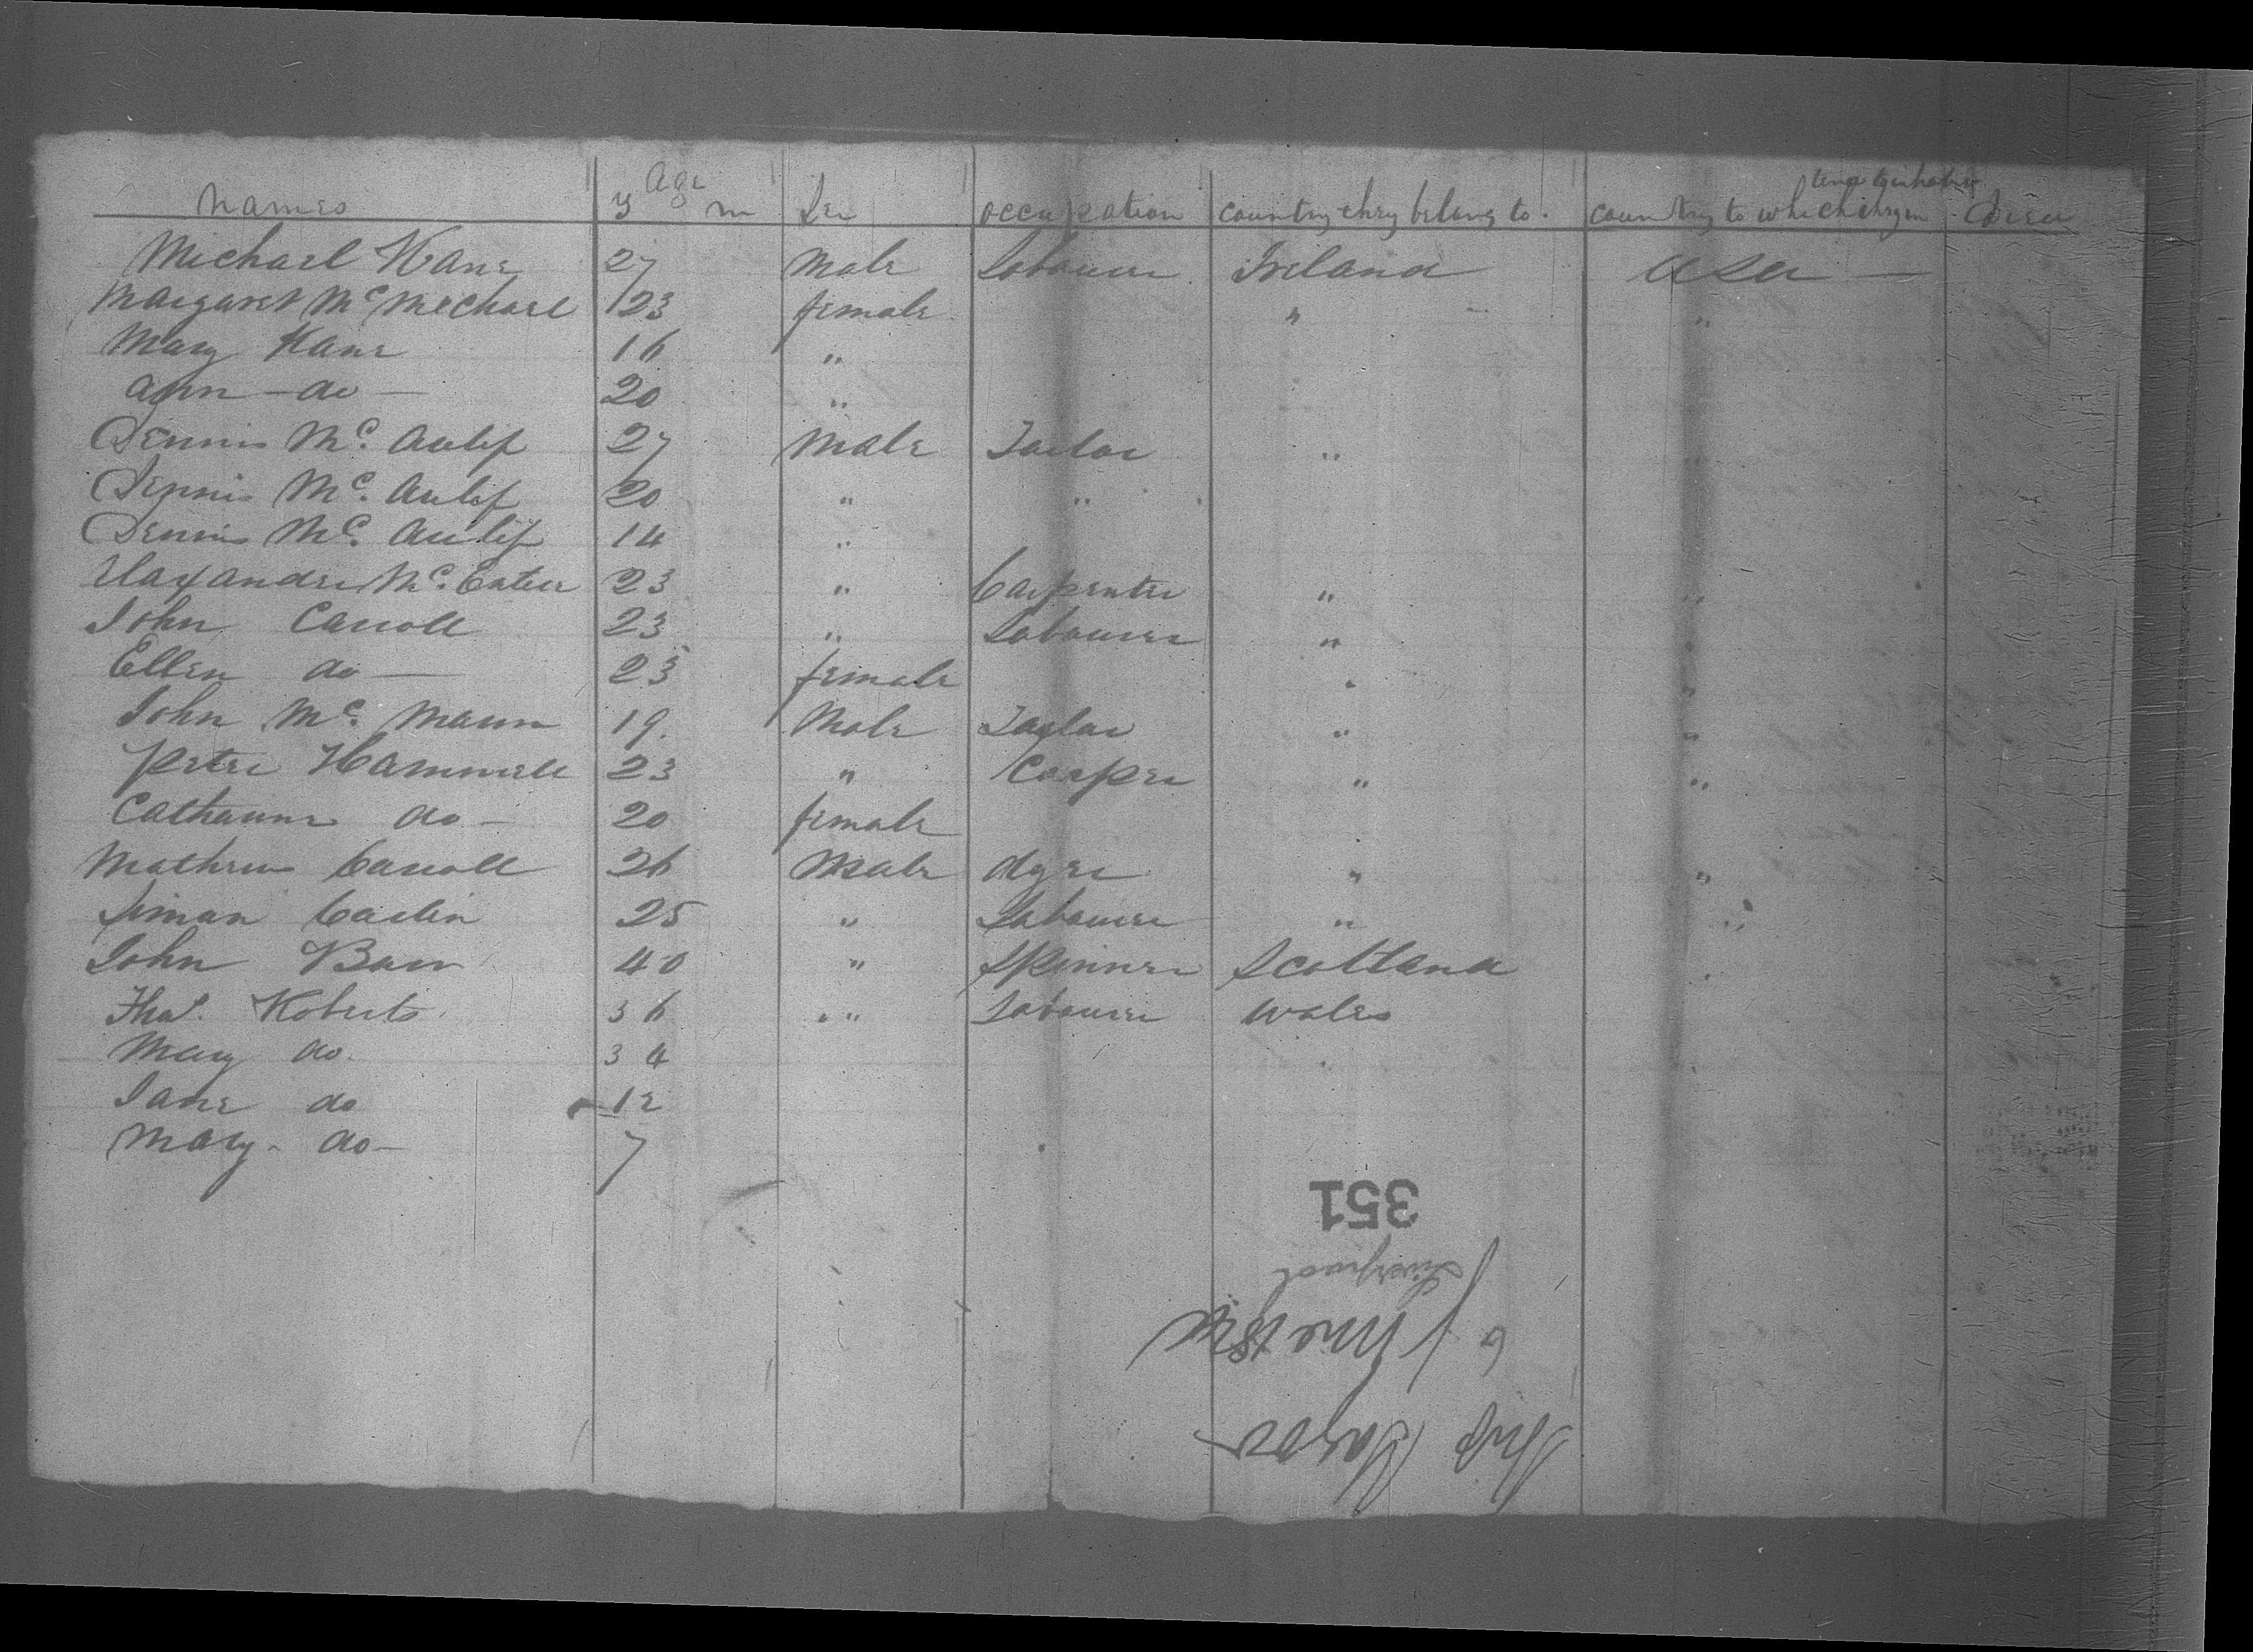 names Age y m Sex occupation country they belong to. country to which they in tend to inhabit Died
Michael Kane 27 Male Labourer Ireland USA —
Margaret Mc Mechael 23 female " "
Mary Kane 16 "
Ann - do - 20 "
Dennis Mc. Aulif 27 Male Taylor "
Dennis Mc. Aulif 20 " "
Dennis Mc. Aulif 14 "
Alaxander Mc. Enteer 23 " Carpenter " "
John Carroll 23 " Labourer " "
Ellen do — 23 female " "
John Mc. Mann 19. Male Taylor " "
Peter Hammell 23 " Cooper " "
Catharine do - 20 female
Mathew Carroll 26 Male dyer " "
Siman Carlin 25 " Labourer " "
John Barr 40 " Spinner Scotland
Thos. Roberts 36 " Labourer Wales
Mary do. 34
Jane do 12
Mary - do - 7
351
Liverpool
6 June
Ship